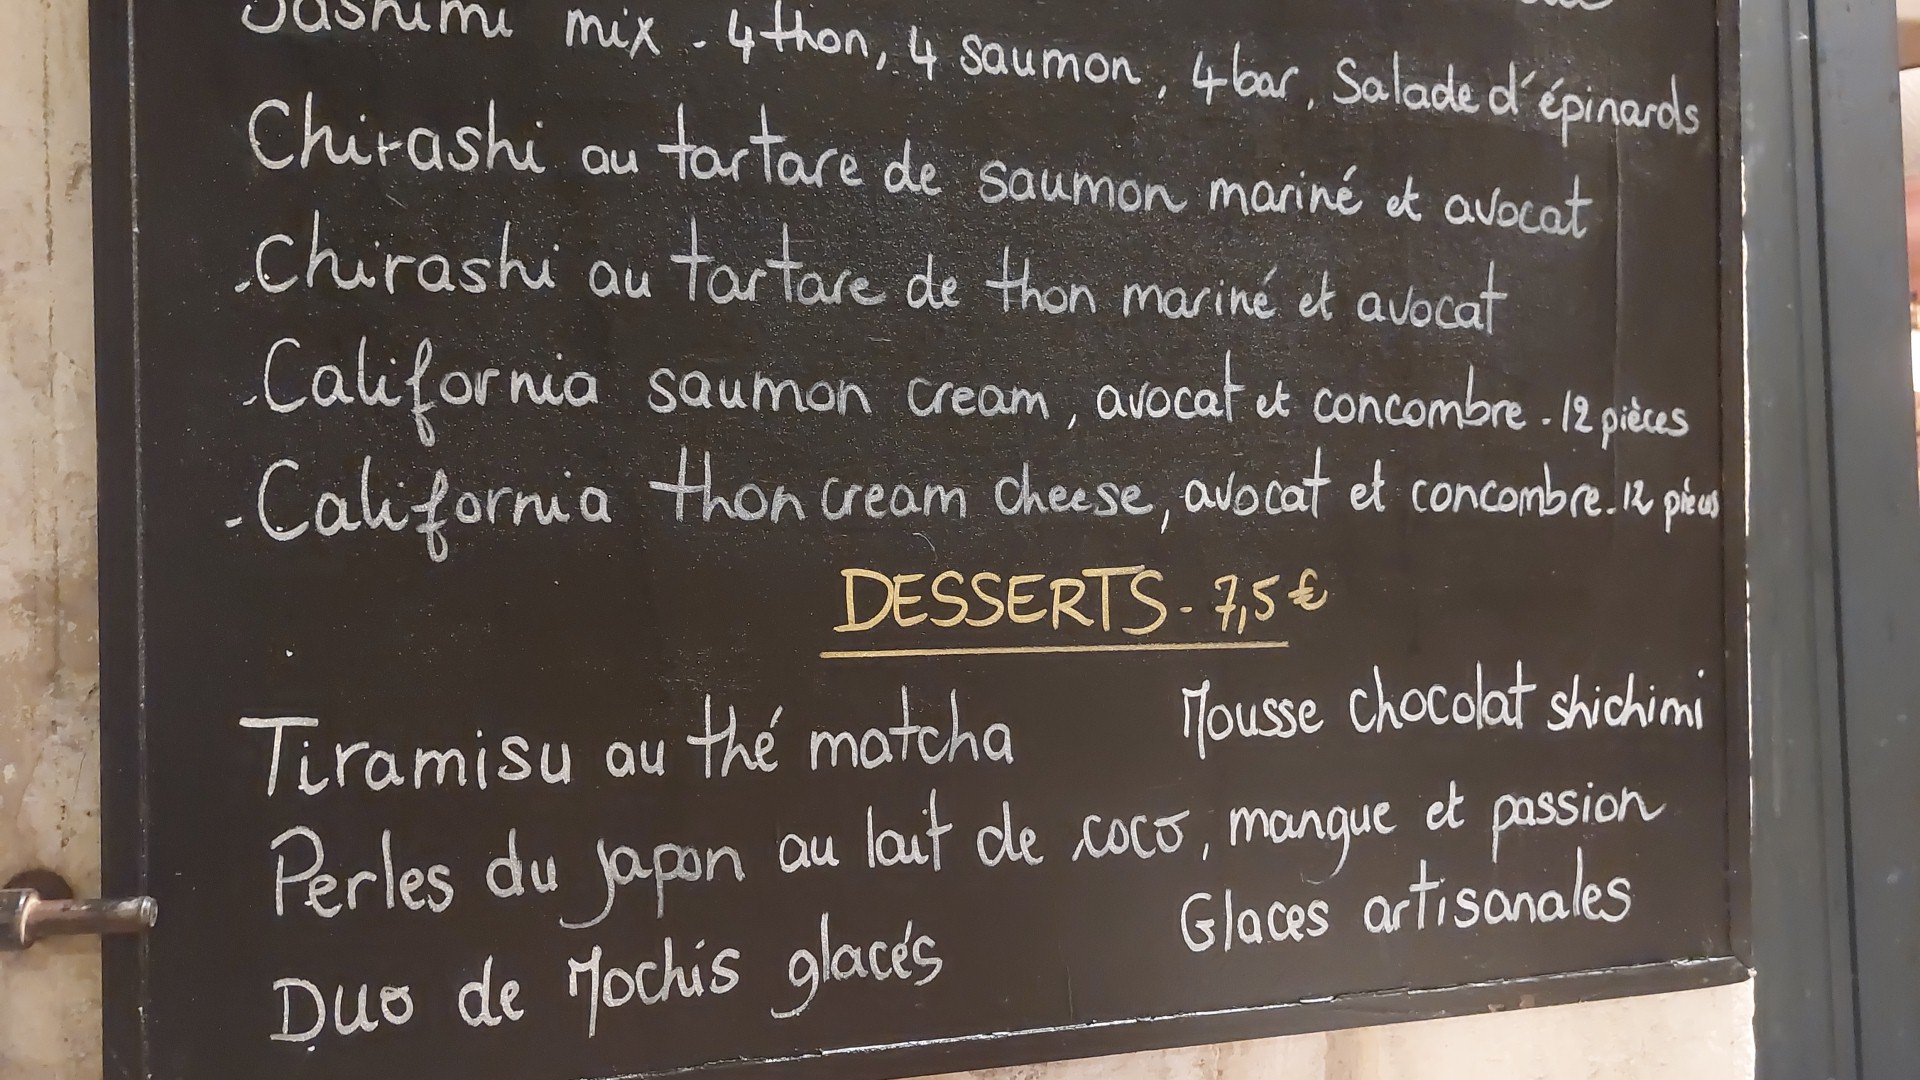 Sashimi mix - 4 thon, 4 saumon, 4 bar, Salade d'épinards
Chirashi au tartare de saumon mariné et avocat
- Chirashi au tartare de thon mariné et avocat
- California saumon cream, avocat et concombre - 12 pièces
- California thon cream cheese, avocat et concombre - 12 pièces
DESSERTS - 7,5€
Tiramisu au thé matcha
Mousse chocolat shichimi
Perles du japon au lait de coco, mangue et passion
Duo de Mochis glacés
Glaces artisanales